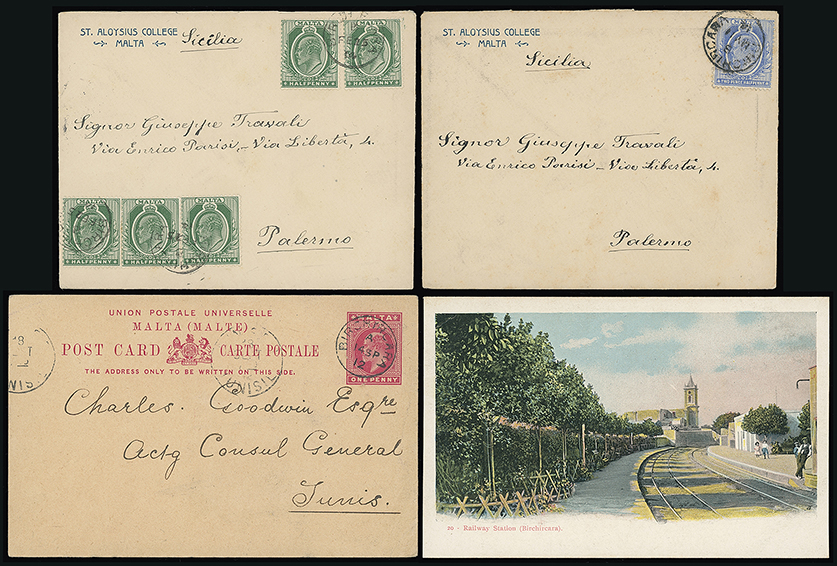 ST. ALOYSIUS COLLEGE
MALTA
Sicilia
MALTA MALTA
HALFPENNY HALFPENNY
Signor Giuseppe Travali
Via Enrico Parisi, – Via Libertà, 4.
MALTA MALTA MALTA
HALFPENNY HALFPENNY HALFPENNY
Palermo
ST. ALOYSIUS COLLEGE
MALTA
Sicilia
BIRCHIRCARA
TWO PENCE HALFPENNY
Signor Giuseppe Travali
Via Enrico Parisi – Via Libertà, 4.
Palermo
UNION POSTALE UNIVERSELLE
MALTA (MALTE)
POST CARD CARTE POSTALE
THE ADDRESS ONLY TO BE WRITTEN ON THIS SIDE.
MALTA
ONE PENNY
BIRCHIRCARA
SP
12
Charles. Goodwin Esqre
Actg Consul General
Tunis.
10 - Railway Station (Birchircara).